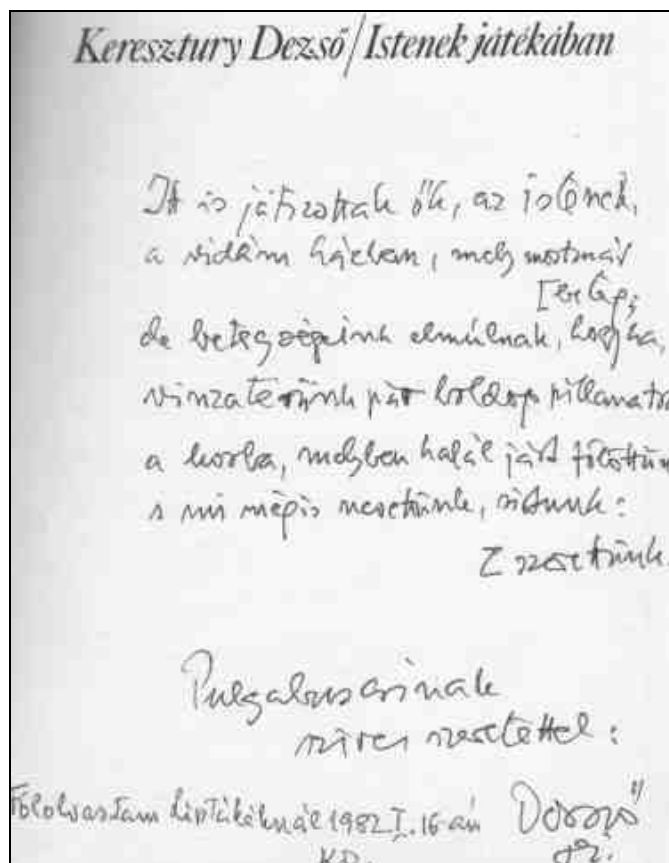 Keresztury Dezső/Istenek játékában
Itt is játszottak ők, az istenek,
a vidám házban, mely mostmár
[beteg;
de betegségeink elmúlnak, hogyha,
visszatérünk pár boldog pillanatra
a korba, melyben halál járt fölöttünk
s mi mégis nevettünk, sírtunk:
[szerettünk.
szíves szeretettel:
Fölolvastam Liptákéknál 1982 I. 16-án Dezső
KD.